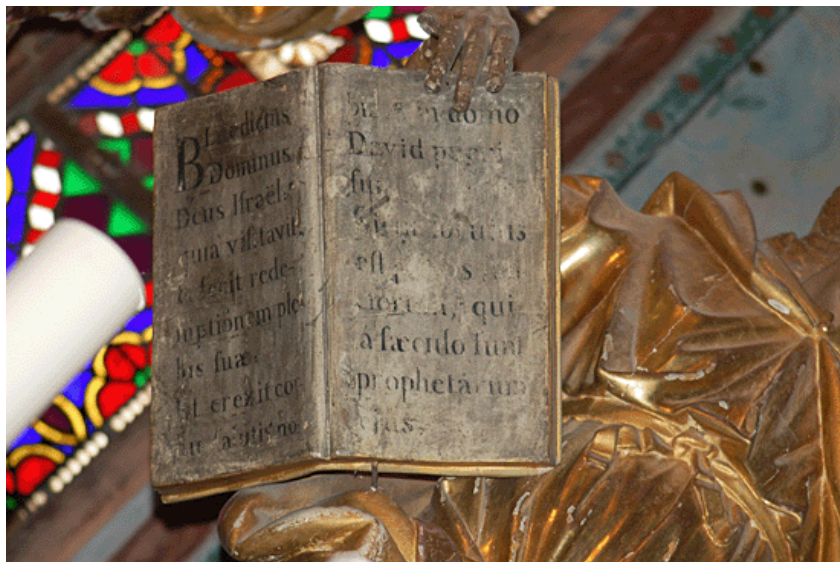 Benedictus
Dominus
Deus Israël:
quia visitavit
& fecit rede-
mptionem ple-
bis suæ.
Et erexit cor-
nu salutis no-
bis in domo
David pueri
sui.
Sicut locutus
est
qui
à sæculo sunt
prophetarum
ejus.